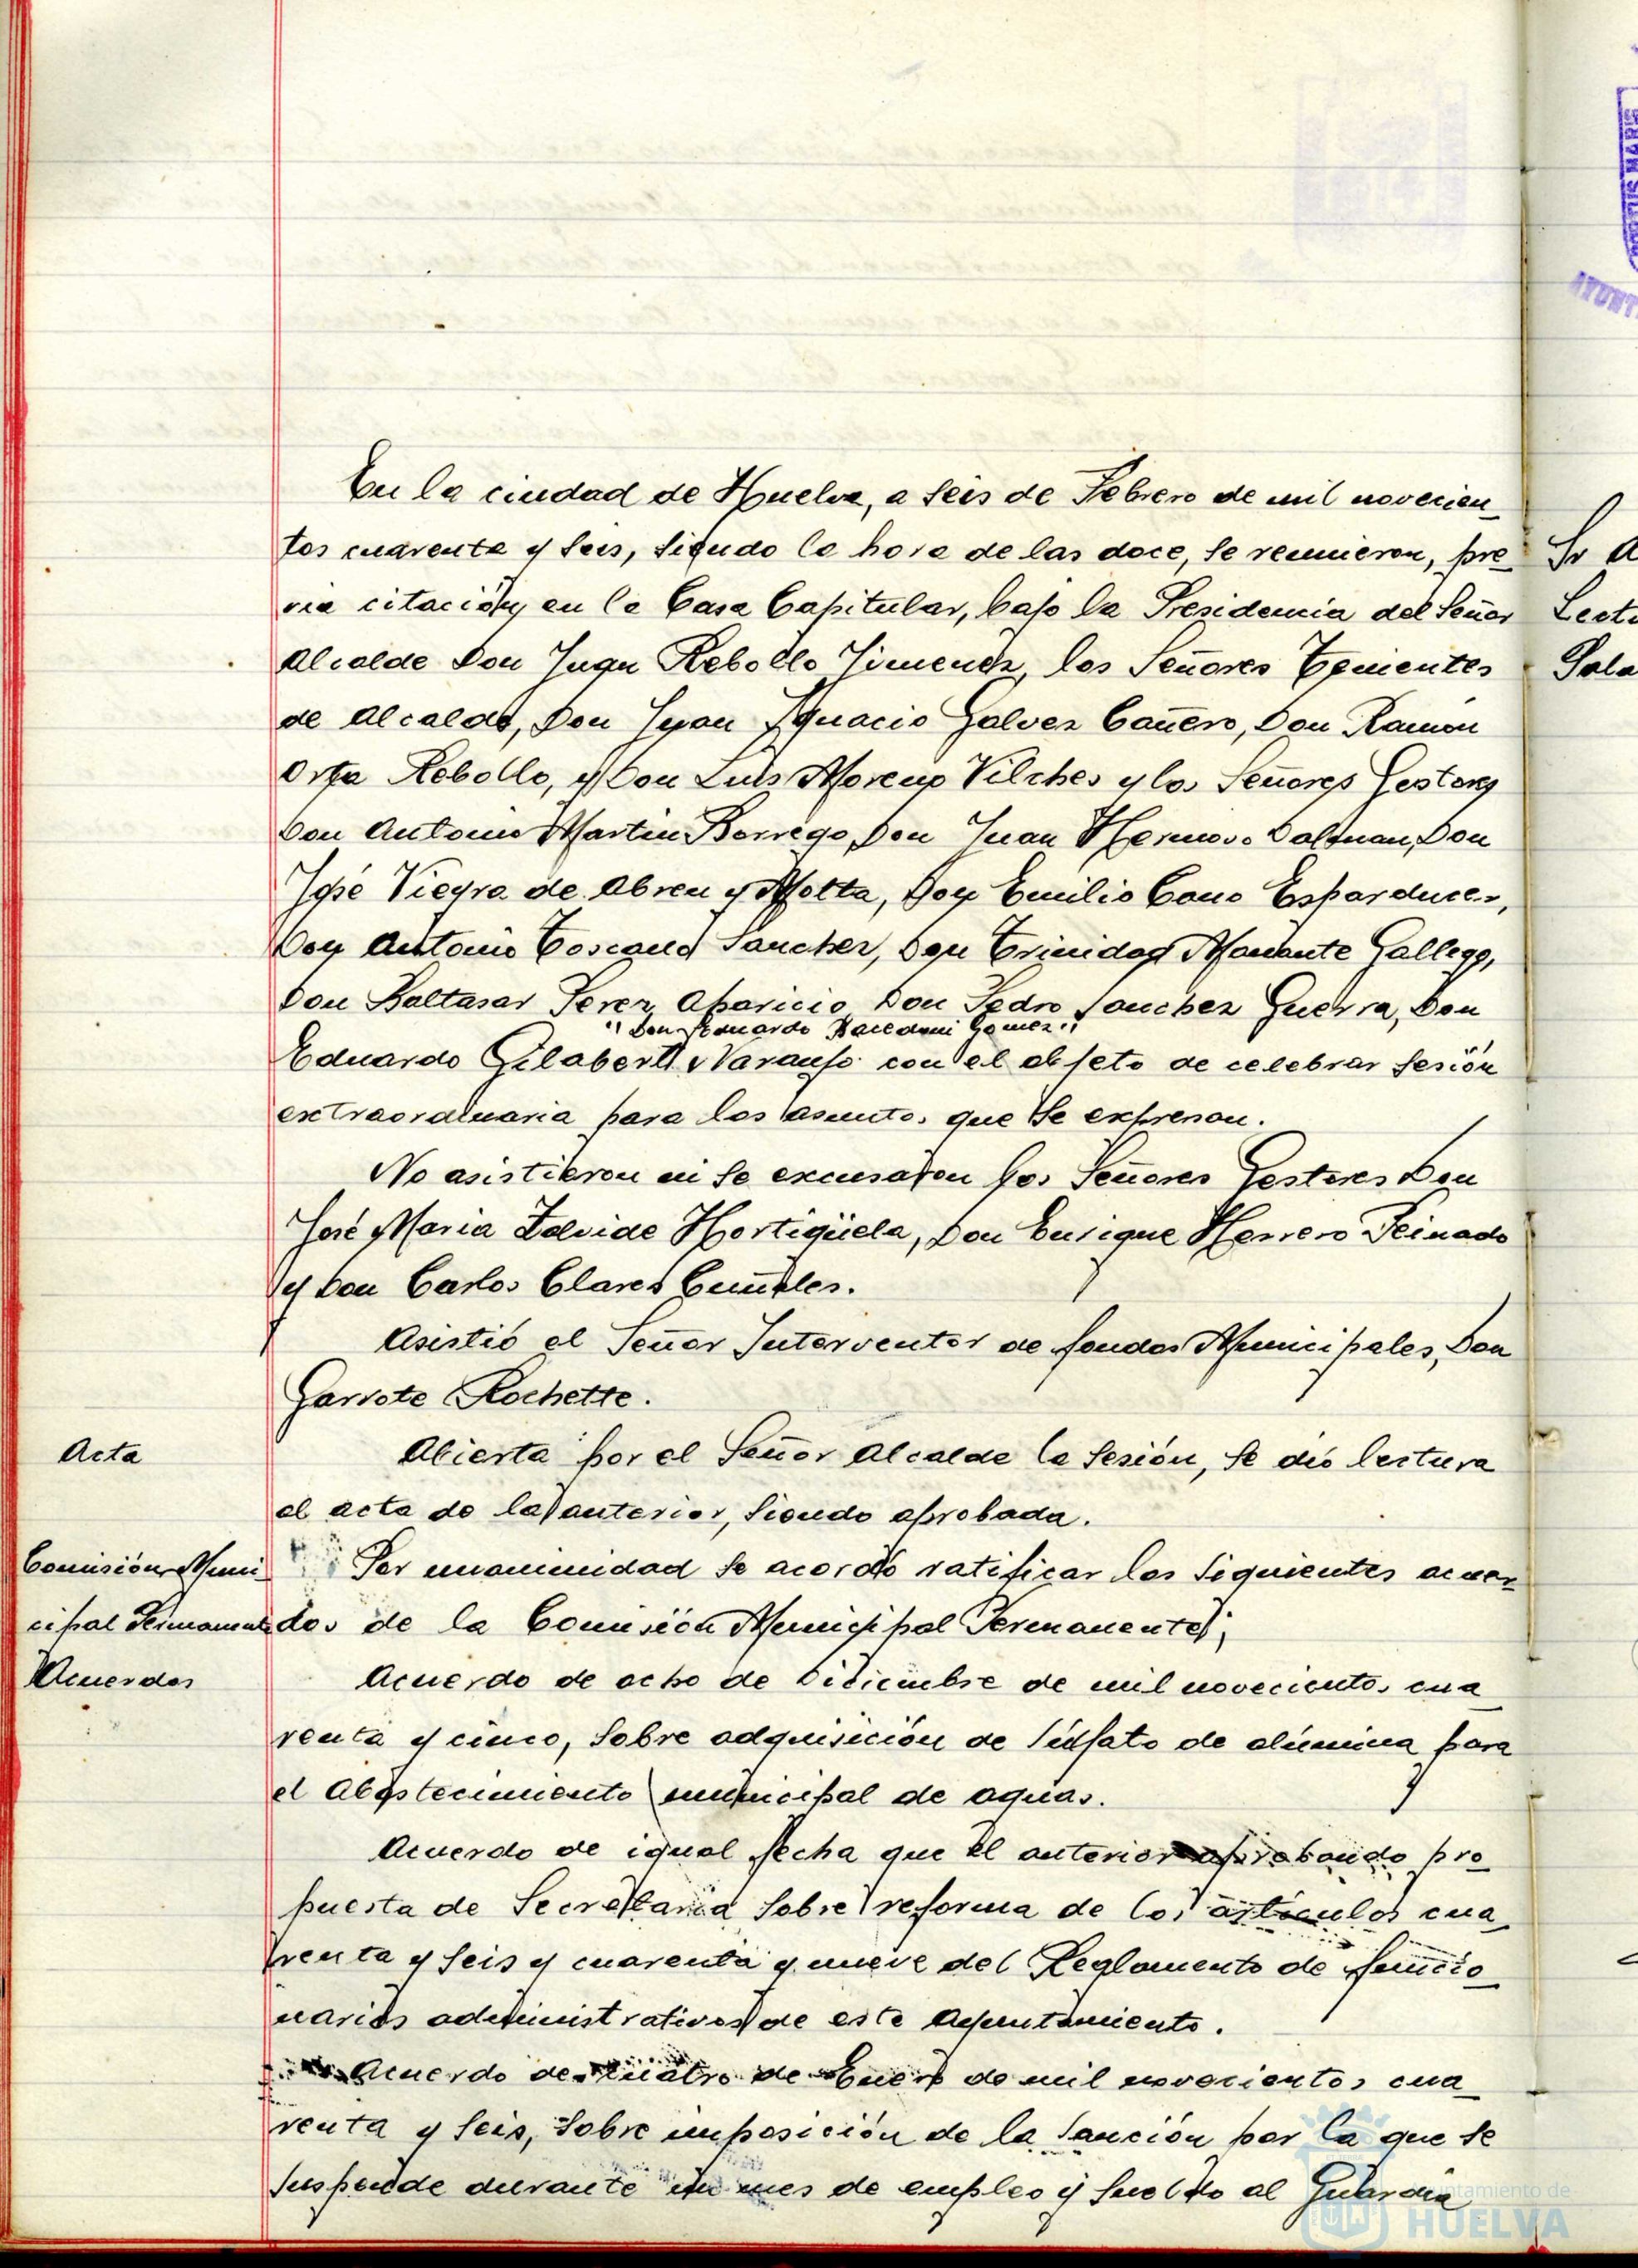 En la ciudad de Huelva, a seis de Febrero de mil novecien-
tos cuarenta y seis, siendo la hora de las doce, se reunieron, pre-
via citación, en la Casa Capitular, bajo la Presidencia del Señor
Alcalde Don Juan Rebollo Jimenez, los Señores Tenientes
de Alcalde, Don Juan Ignacio Galvez Cañero, Don Ramón
Orta Rebollo, y Don Luis Moreno Vilches y los Señores Gestores
Don Antonio Martin Borrego, Don Juan Hermoso Dalman, Don
José Vieyra de Abreu y Motta, Don Emilio Cano Esparducer,
Don Antonio Toscano Sanchez, Don Trinidad Manante Gallego,
Don Baltasar Perez Aparicio, Don Pedro Sanchez Guerra, Don
"Don Eduardo Gomez"
Eduardo Gilabert Naranjo con el objeto de celebrar sesión
extraordinaria para los asuntos que se expresan.
No asistieron ni se excusaron los Señores Gestores Don
José Maria Zalvide Hortigüela, Don Enrique Herrero Peinado
y Don Carlos Clares
Asistió el Señor Interventor de fondos Municipales, Don
Garrote Rochette.
Acta
Abierta por el Señor Alcalde la sesión, se dió lectura
al acta de la anterior, siendo aprobada.
Comisión Muni-
cipal Permanente
Acuerdos
Por unanimidad se acordó ratificar los siguientes acuer-
dos de la Comisión Municipal Permanente;
Acuerdo de ocho de Diciembre de mil novecientos cua-
renta y cinco, sobre adquisición de súlfato de alúmina para
el Abastecimiento municipal de aguas.
Acuerdo de igual fecha que el anterior aprobando pro-
puesta de Secretaria sobre reforma de los artículos cua-
renta y seis y cuarenta y nueve del Reglamento de funcio-
narios administrativos de este Ayuntamiento.
Acuerdo de cuatro de Enero de mil novecientos cua-
renta y seis, sobre imposición de la sanción por la que se
suspende durante un mes de empleo y sueldo al Guardia
Sr A
Lect
Pala
PORTUS MARIS
AYUNT
Ayuntamiento de
HUELVA